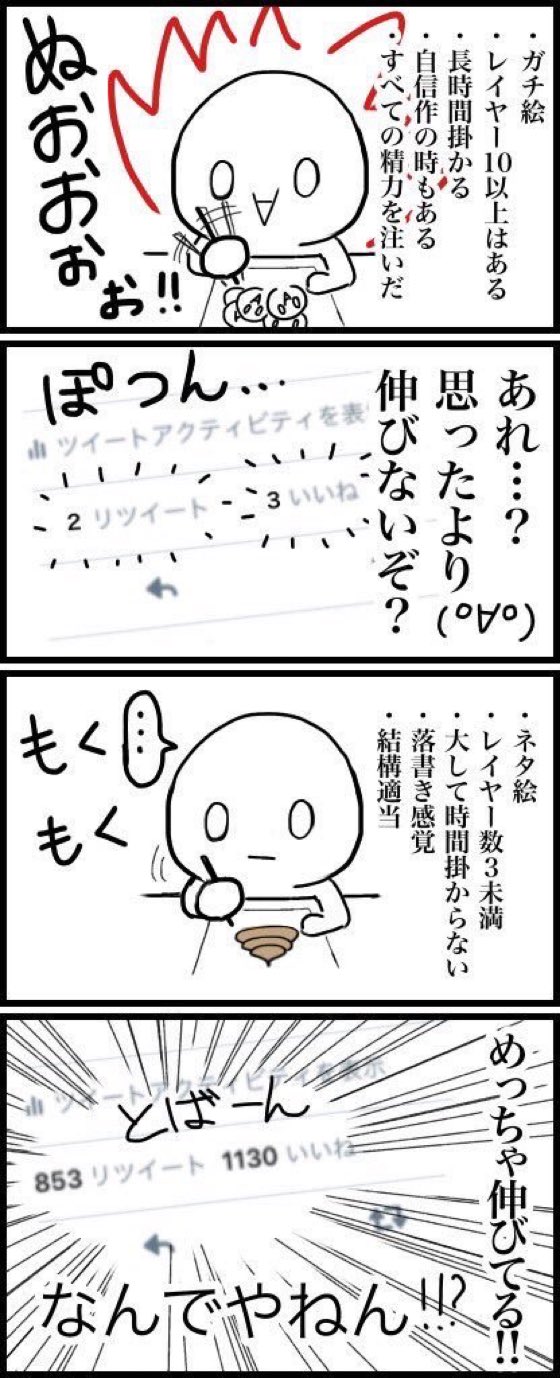 ・ガチ絵
・レイヤー10以上はある
・長時間掛かる
・自信作の時もある
・すべての精力を注いだ
ぬおおおぉぉ!!
あれ…?
思ったより
伸びないぞ?
(ﾟ∀ﾟ)
ぽつん…
ツイートアクティビティを表
2 リツイート 3 いいね
・ネタ絵
・レイヤー数3未満
・大して時間掛からない
・落書き感覚
・結構適当
…
もく
もく
めっちゃ伸びてる!!
ツイートアクティビティを表示
とばーん
853 リツイート 1130 いいね
なんでやねん!!?